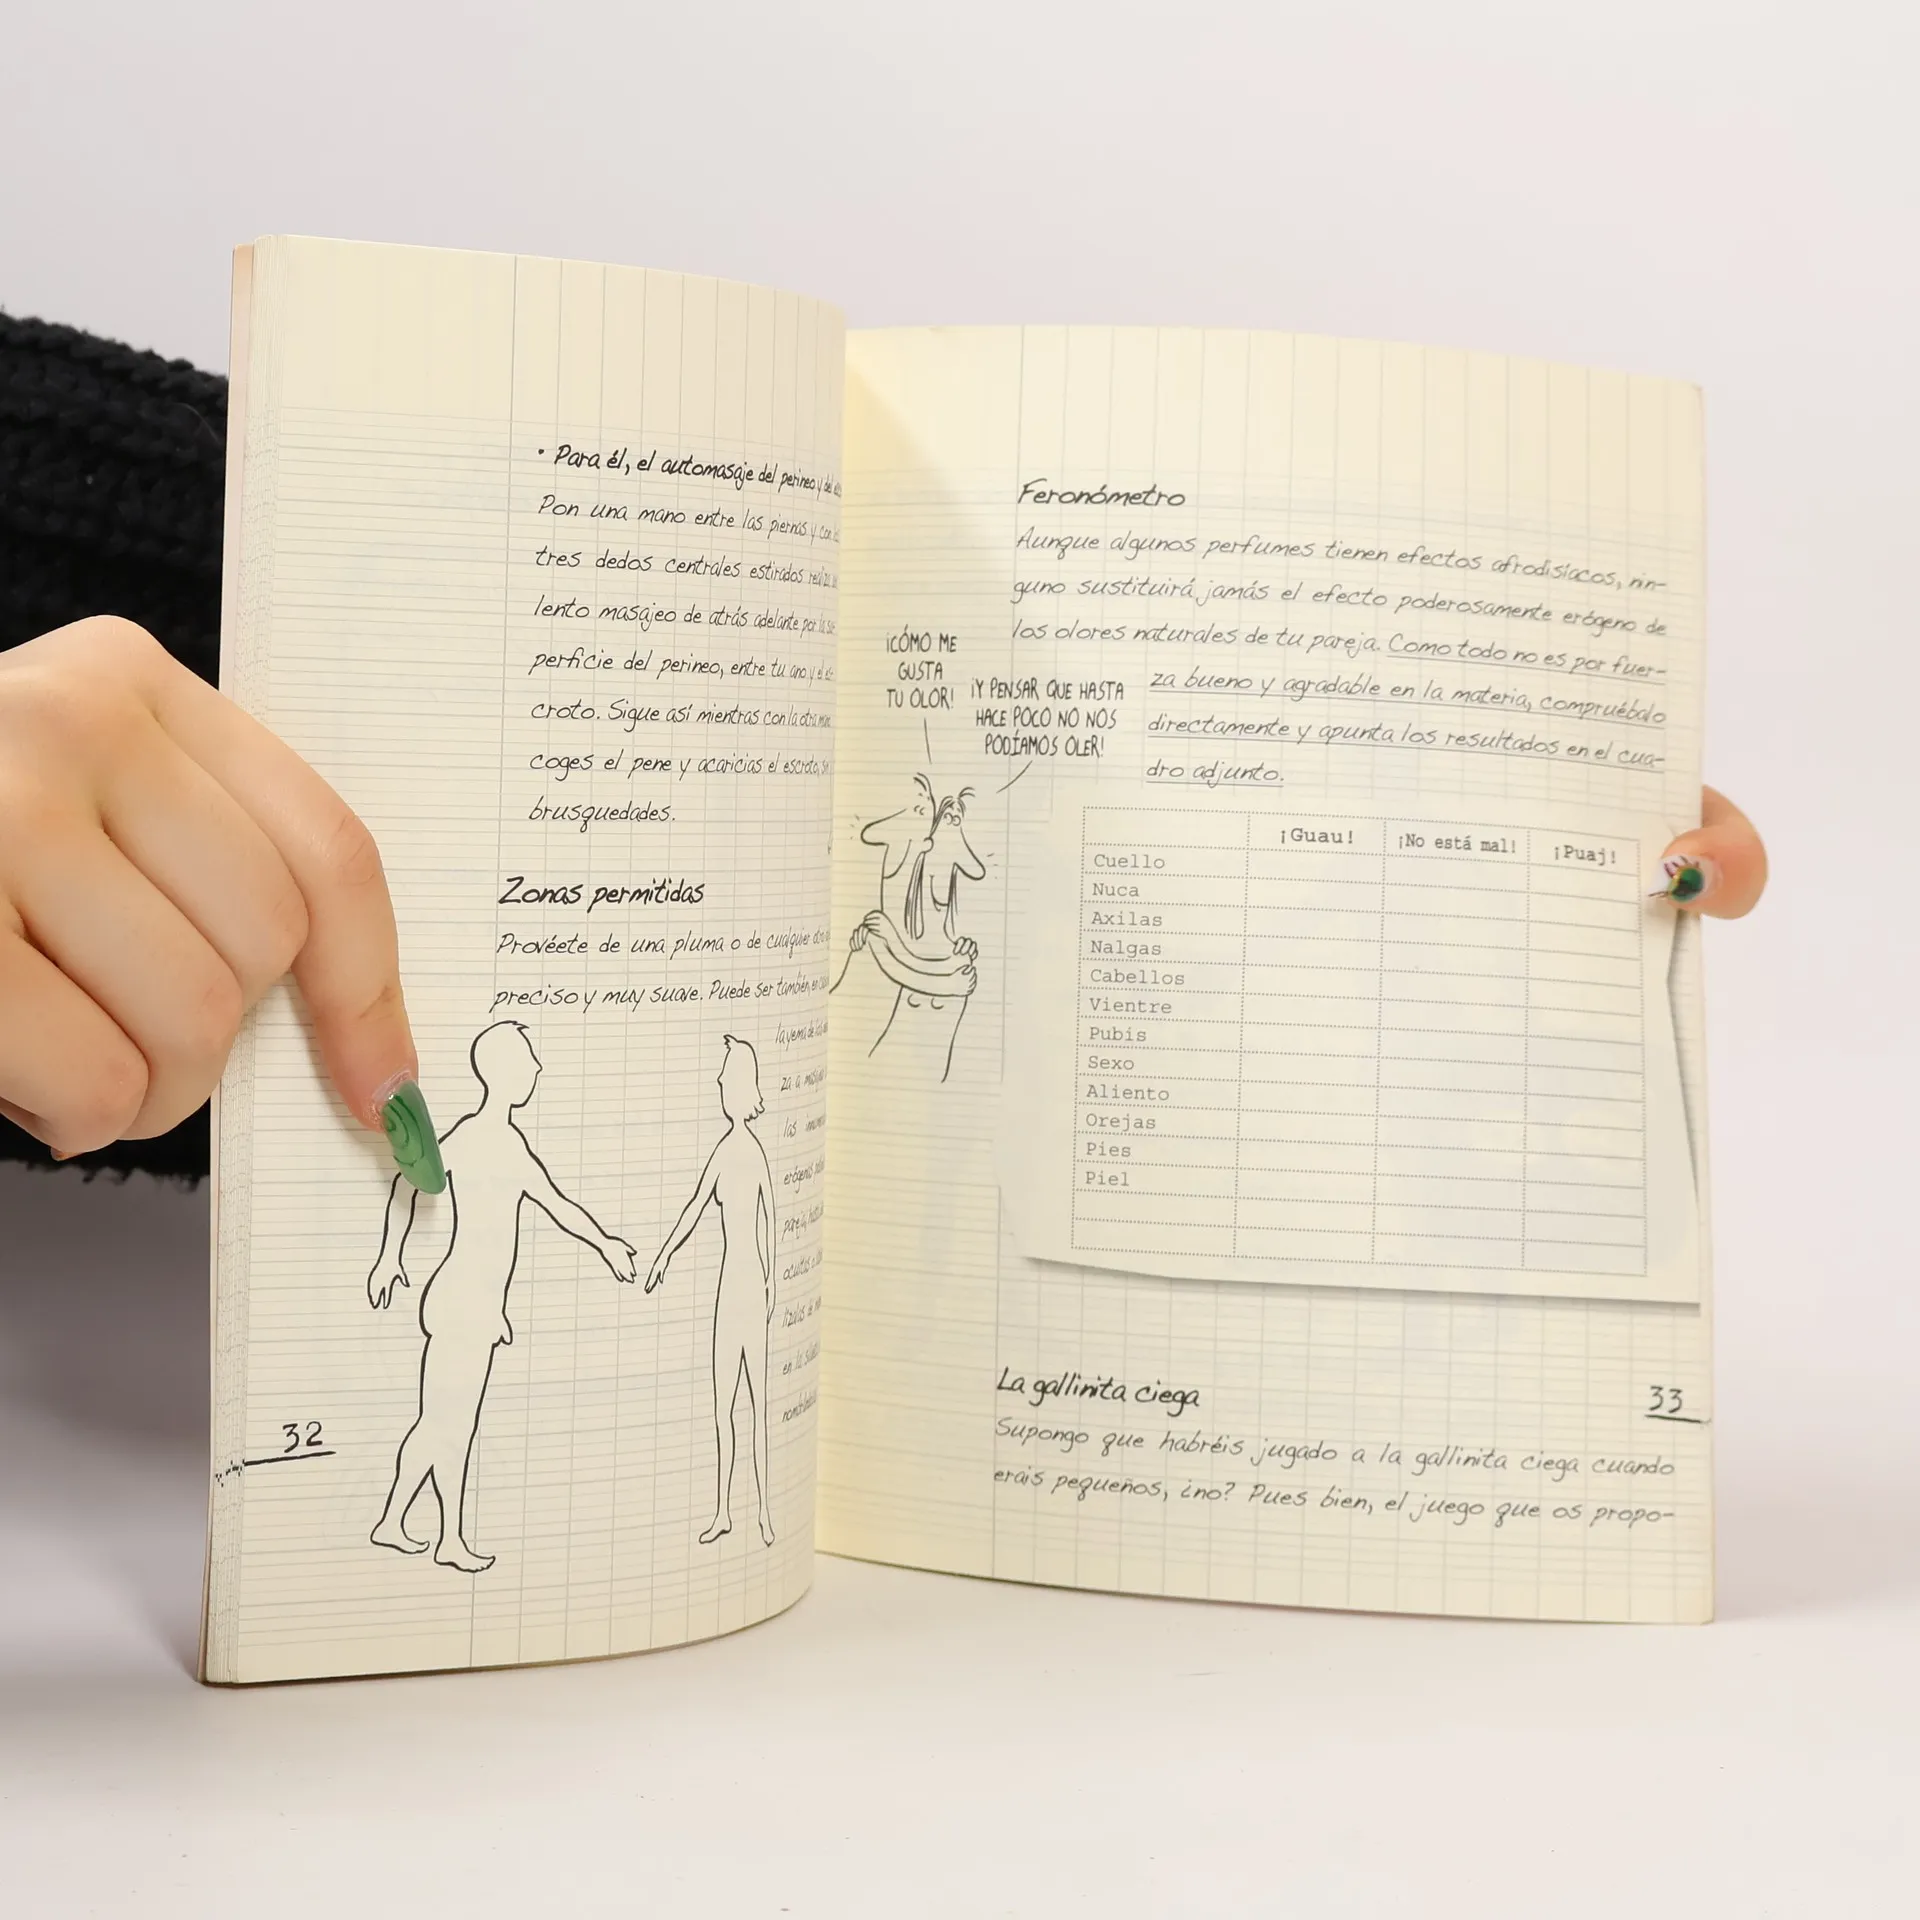 • Para él, el automasaje del perineo y del
Pon una mano entre las piernas y con
tres dedos centrales estirados realiza
lento masajeo de atrás adelante por la
perficie del perineo, entre tu ano y el
croto. Sigue así mientras con la otra
coges el pene y acaricias el escroto,
brusquedades.
Zonas permitidas
Provéete de una pluma o de cualquier
preciso y muy suave. Puede ser también, en
la yema de
za a
las
en la
32
Feronómetro
Aunque algunos perfumes tienen efectos afrodisíacos, nin-
guno sustituirá jamás el efecto poderosamente erógeno de
los olores naturales de tu pareja. Como todo no es por fuer-
za bueno y agradable en la materia, compruébalo
directamente y apunta los resultados en el cua-
dro adjunto.
¡CÓMO ME
GUSTA
TU OLOR!
¡Y PENSAR QUE HASTA
HACE POCO NO NOS
PODÍAMOS OLER!
¡Guau! ¡No está mal! ¡Puaj!
Cuello
Nuca
Axilas
Nalgas
Cabellos
Vientre
Pubis
Sexo
Aliento
Orejas
Pies
Piel
La gallinita ciega
33
Supongo que habréis jugado a la gallinita ciega cuando
erais pequeños, ¿no? Pues bien, el juego que os propo-